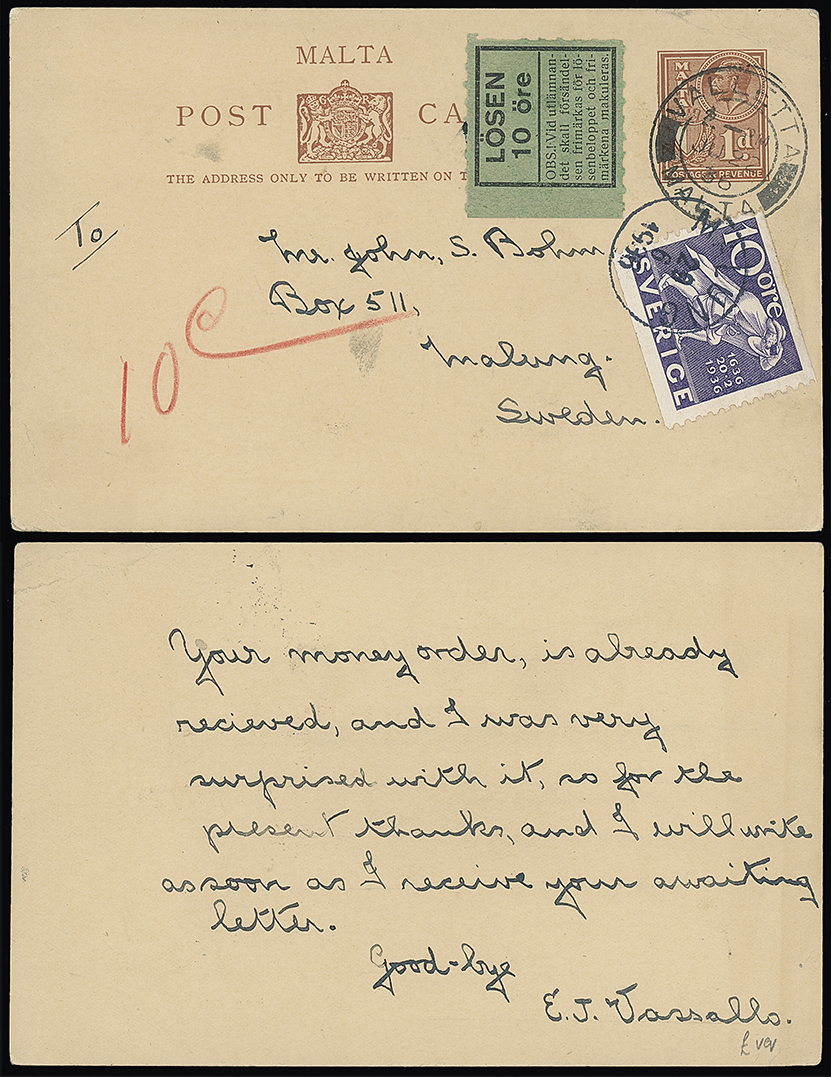 MALTA
POST CA
THE ADDRESS ONLY TO BE WRITTEN ON T
LÖSEN
10 öre
OBS.! Vid utlämnan-
det skall försändel-
sen frimärkas för lö-
senbeloppet och fri-
märkena makuleras.
MA
1d
POSTAGE & REVENUE
VALLETTA
MALTA
To
Mr. John, S. Bohm
Box 511,
Malung.
Sweden.
10
19 36
10 öre
SVERIGE
1636
20.2
1936
Your money order, is already
recieved, and I was very
surprised with it, so for the
present thanks, and I will write
as soon as I receive your awaiting
letter.
Good-bye
E. J. Vassallo.